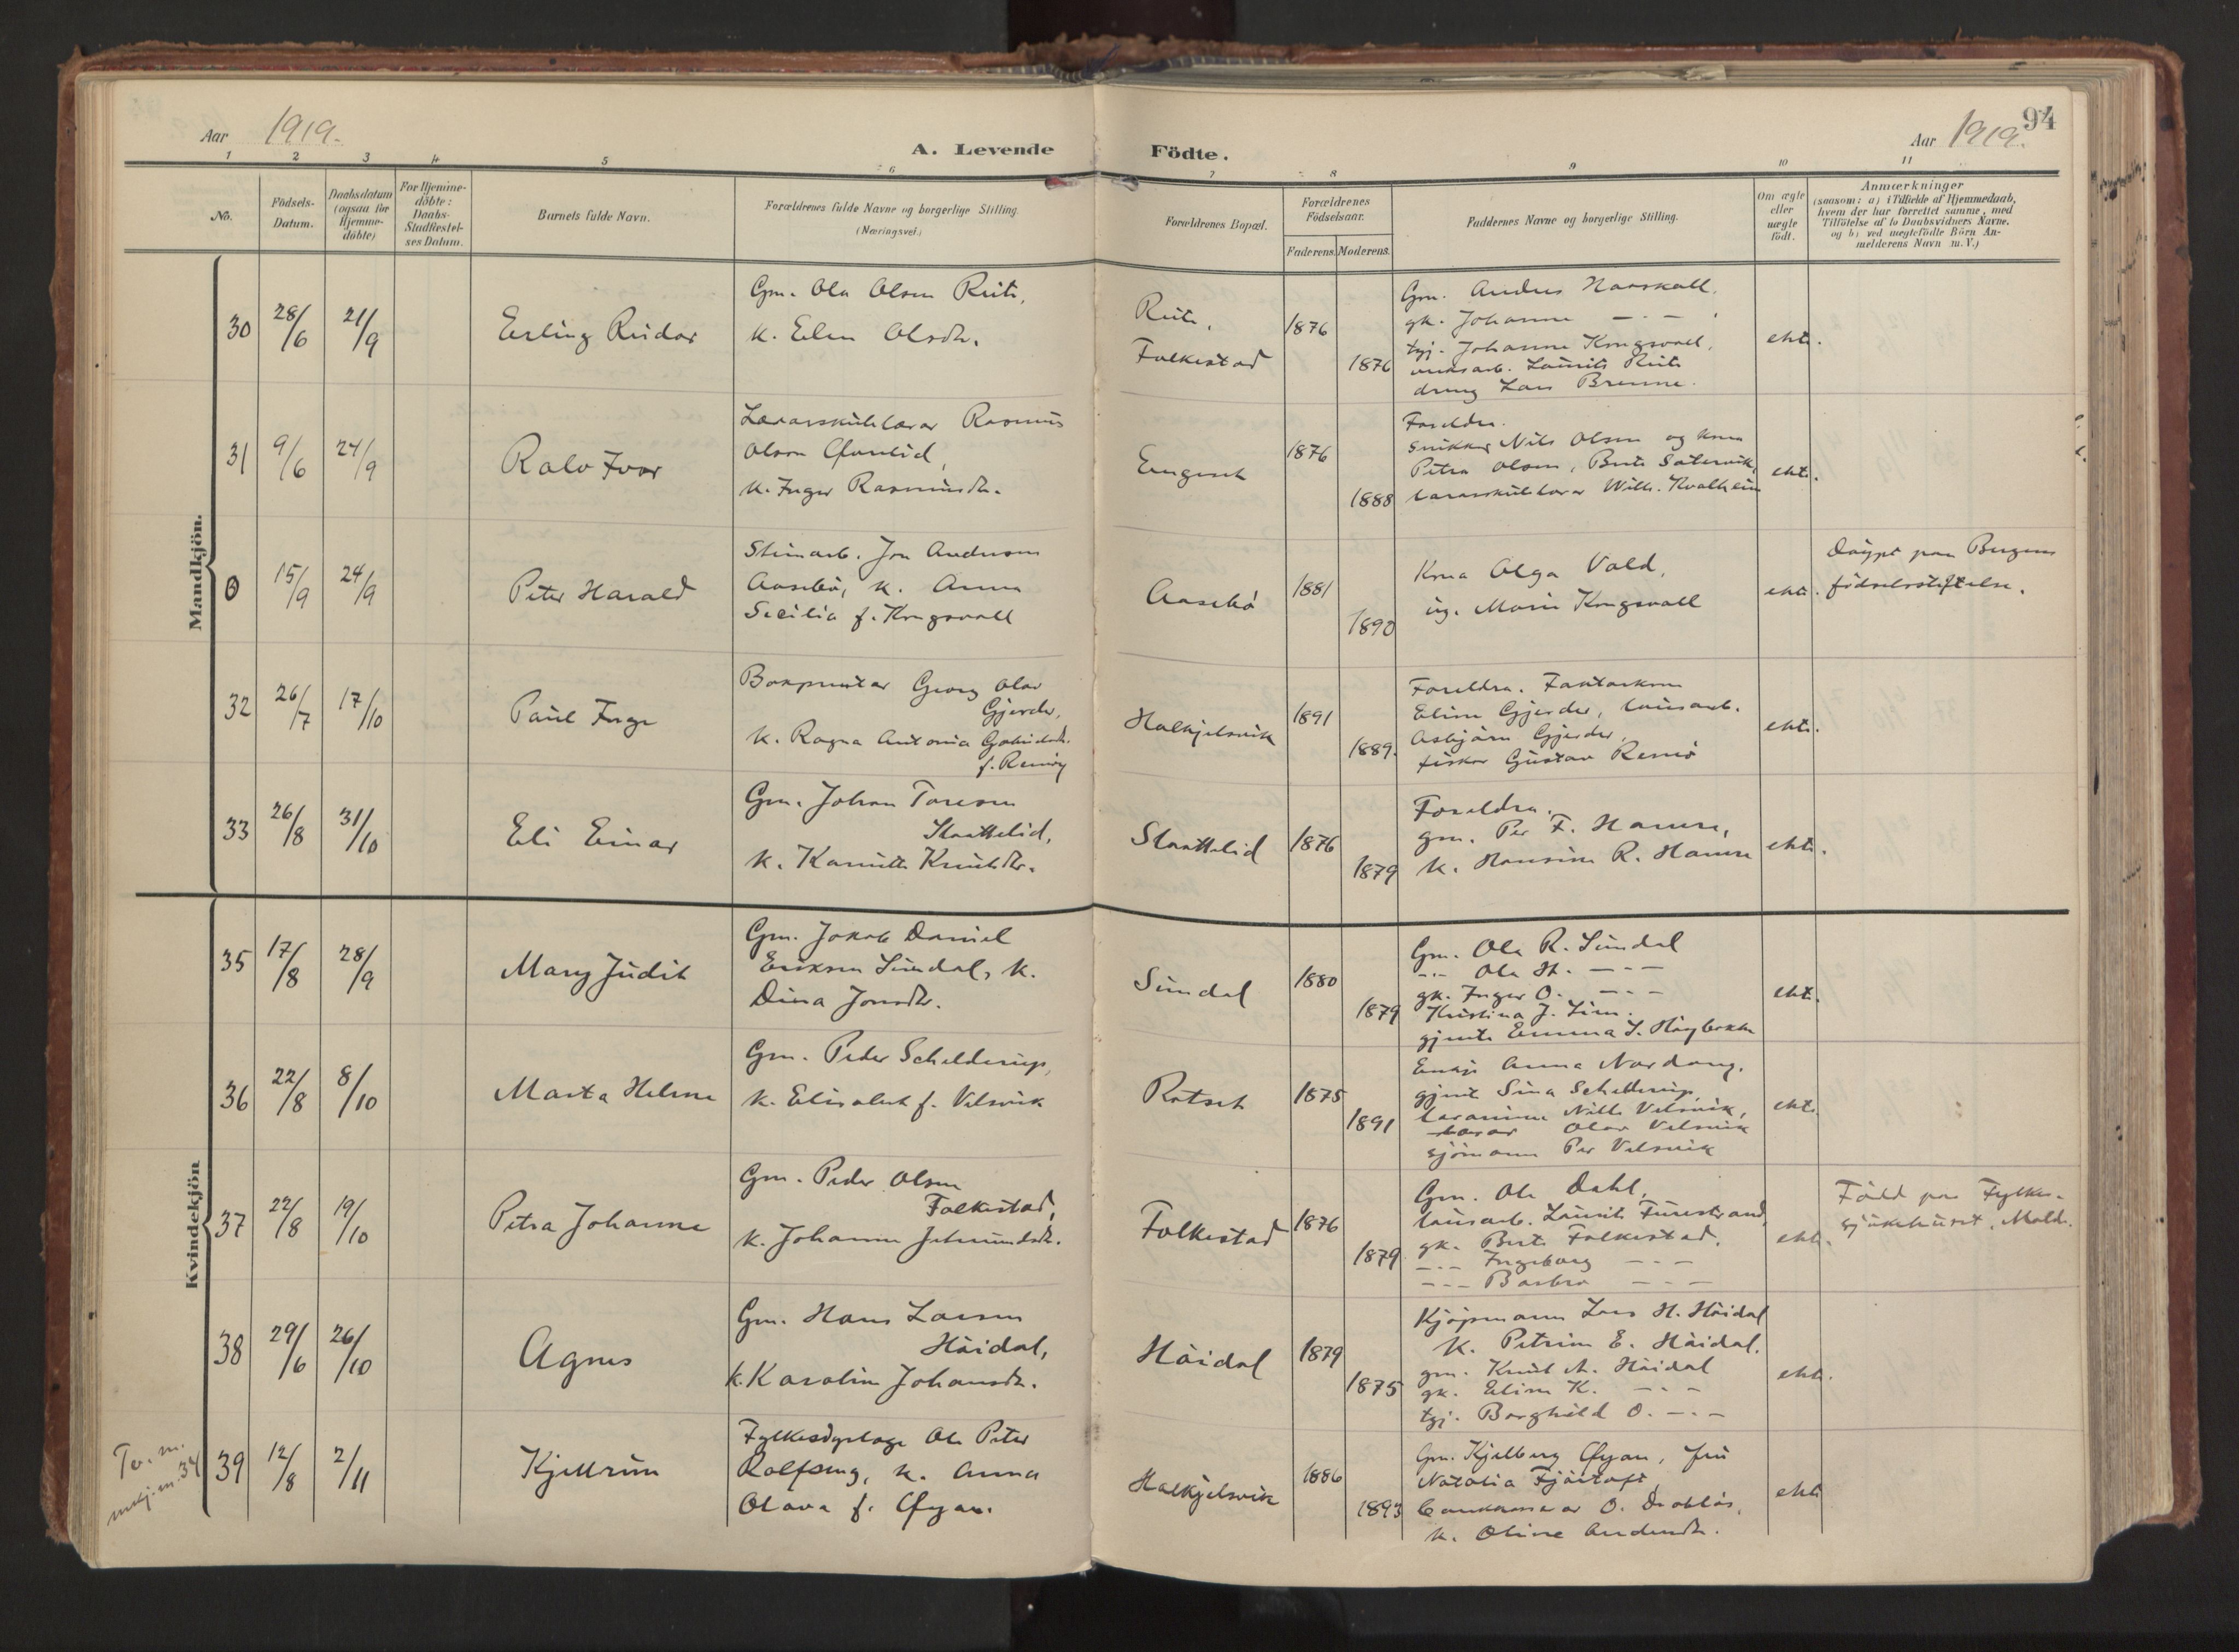 Aar 1919.
A. Levende
Födte.
Aar 1919.
94
1 2 3 4 5 6 7 8 9 10 11
No.
Födsels-
Datum.
Daabsdatum
(ogsaa for
Hjemme-
döbte)
For Hjemme-
döbte:
Daabs-
Stadfestel-
ses Datum.
Barnets fulde Navn.
Forældrenes fulde Navne og borgerlige Stilling.
(Næringsvei.)
Forældrenes Bopæl.
Forældrenes
Födselsaar.
Faderens. Moderens.
Faddernes Navne og borgerlige Stilling.
Om ægte
eller
uægte
födt.
Anmærkninger
(saasom: a) i Tilfælde af Hjemmedaab,
hvem der har forrettet samme, med
Tilföielse af to Daabsvidners Navne.
og b) ved uægtefödte Börn An-
melderens Navn m. V.)
Mandkjön.
30 28/6 21/9
Erling Reidar
Gm. Ola Olsen Reite,
k. Elen Olsdtr.
Reite,
Folkestad
1876
1876
Gm. Anders Kaarskall.
gk. Johanne — . — .
tgj. Johanne Kongsvoll.
Laurits Reite
dreng Lars Brenne.
ekte.
31 9/6 24/9
Rolv Ivar
Lærarskulelærar Rasmus
Olson
k. Inger Rasmusdtr.
Engeset
1876
1888
Foreldra.
Snikkar Nils Olsen og kona
Petra Olsen, Berte Sætervik,
lærarskulelærar Wilh. Kvalheim
ekte.
0 15/9 24/9
Peter Harald
Steinarb. Jon Anderson
Aasebø, k. Anna
Secilia f. Kongsvoll
Aasebø
1881
1890
Kona Olga Vold,
ug. Marie Kongsvoll
ekte.
Døypt paa Bergens
fødselsstiftelse.
32 26/7 17/10
Paul Inge
Bokprentar Georg Olav
Gjerde,
k. Ragna Antonia
f. Remøy
Halkjelsvik
1891
1889.
Foreldra. Faktorkona
Eline Gjerde, lausarb.
Asbjørn Gjerde,
fiskar Gustav Remø
ekte.
33 26/8 31/10
Eli Einar
Gm. Johan Toresen
Slaattelid,
k. Kanutte Knutsdtr.
Slaattelid
1876
1879
Foreldra.
gm. Per F. Hamre,
k. Hansine R. Hamre
ekte.
Kvindekjön
35 17/8 28/9
Mary Judit
Gm. Jakob Daniel
Eriksen Sundal, k.
Dina Jonsdtr.
Sundal
1880
1879
Gm. Ola R. Sundal
-.- Ola H. — - —
gk. Inger O. — - —
Kristina J. Lien.
gjente Emma S. Høybakk
ekt.
36 22/8 8/10
Marta Helene
Gm. Peder Schelderup,
k. Elisabet f. Velsvik
Rotset
1875
1891
Enkje Anna Nordang.
gjente Sina Schelderup,
lærarinne Nille Velsvik,
lærar Olav Velsvik
sjømann Per Velsvik
ekte.
37 22/8 19/10
Petra Johanne
Gm. Peder Olsen
Folkestad,
k. Johanne Jetmundsdtr.
Folkestad
1876
1879
Gm. Ole Dahl,
lausarb. Laurits Furestrand,
gk. Berte Folkestad.
-.- Ingeborg — - —
-.- Barbra — - —
ekte.
Född paa Fylkes-
sjukehuset, Molde.
38 29/6 26/10
Agnes
Gm. Hans Larsen
Høidal,
k. Karoline Johansdtr.
Høidal
1879
1875
Kjøpmann Lars H. Høidal
k. Petrine E. Høidal.
gm. Knut A. Høidal
gk. Eline K. — - —
tgj. Borghild O. — . —
ekte.
Tv. m.
mkj. n. 34
39 12/8 2/11
Kjellrun
Fylkesdyrlæge Ole Peter
Rolfseng, k. Anna
Olava f. Øyan.
Halkjelsvik
1886
1893
Gm. Kjelberg Øyan, fru
Natalia Fjørtoft,
bankkasserar O. Drabløs,
k. Oline Andersdtr.
ekte